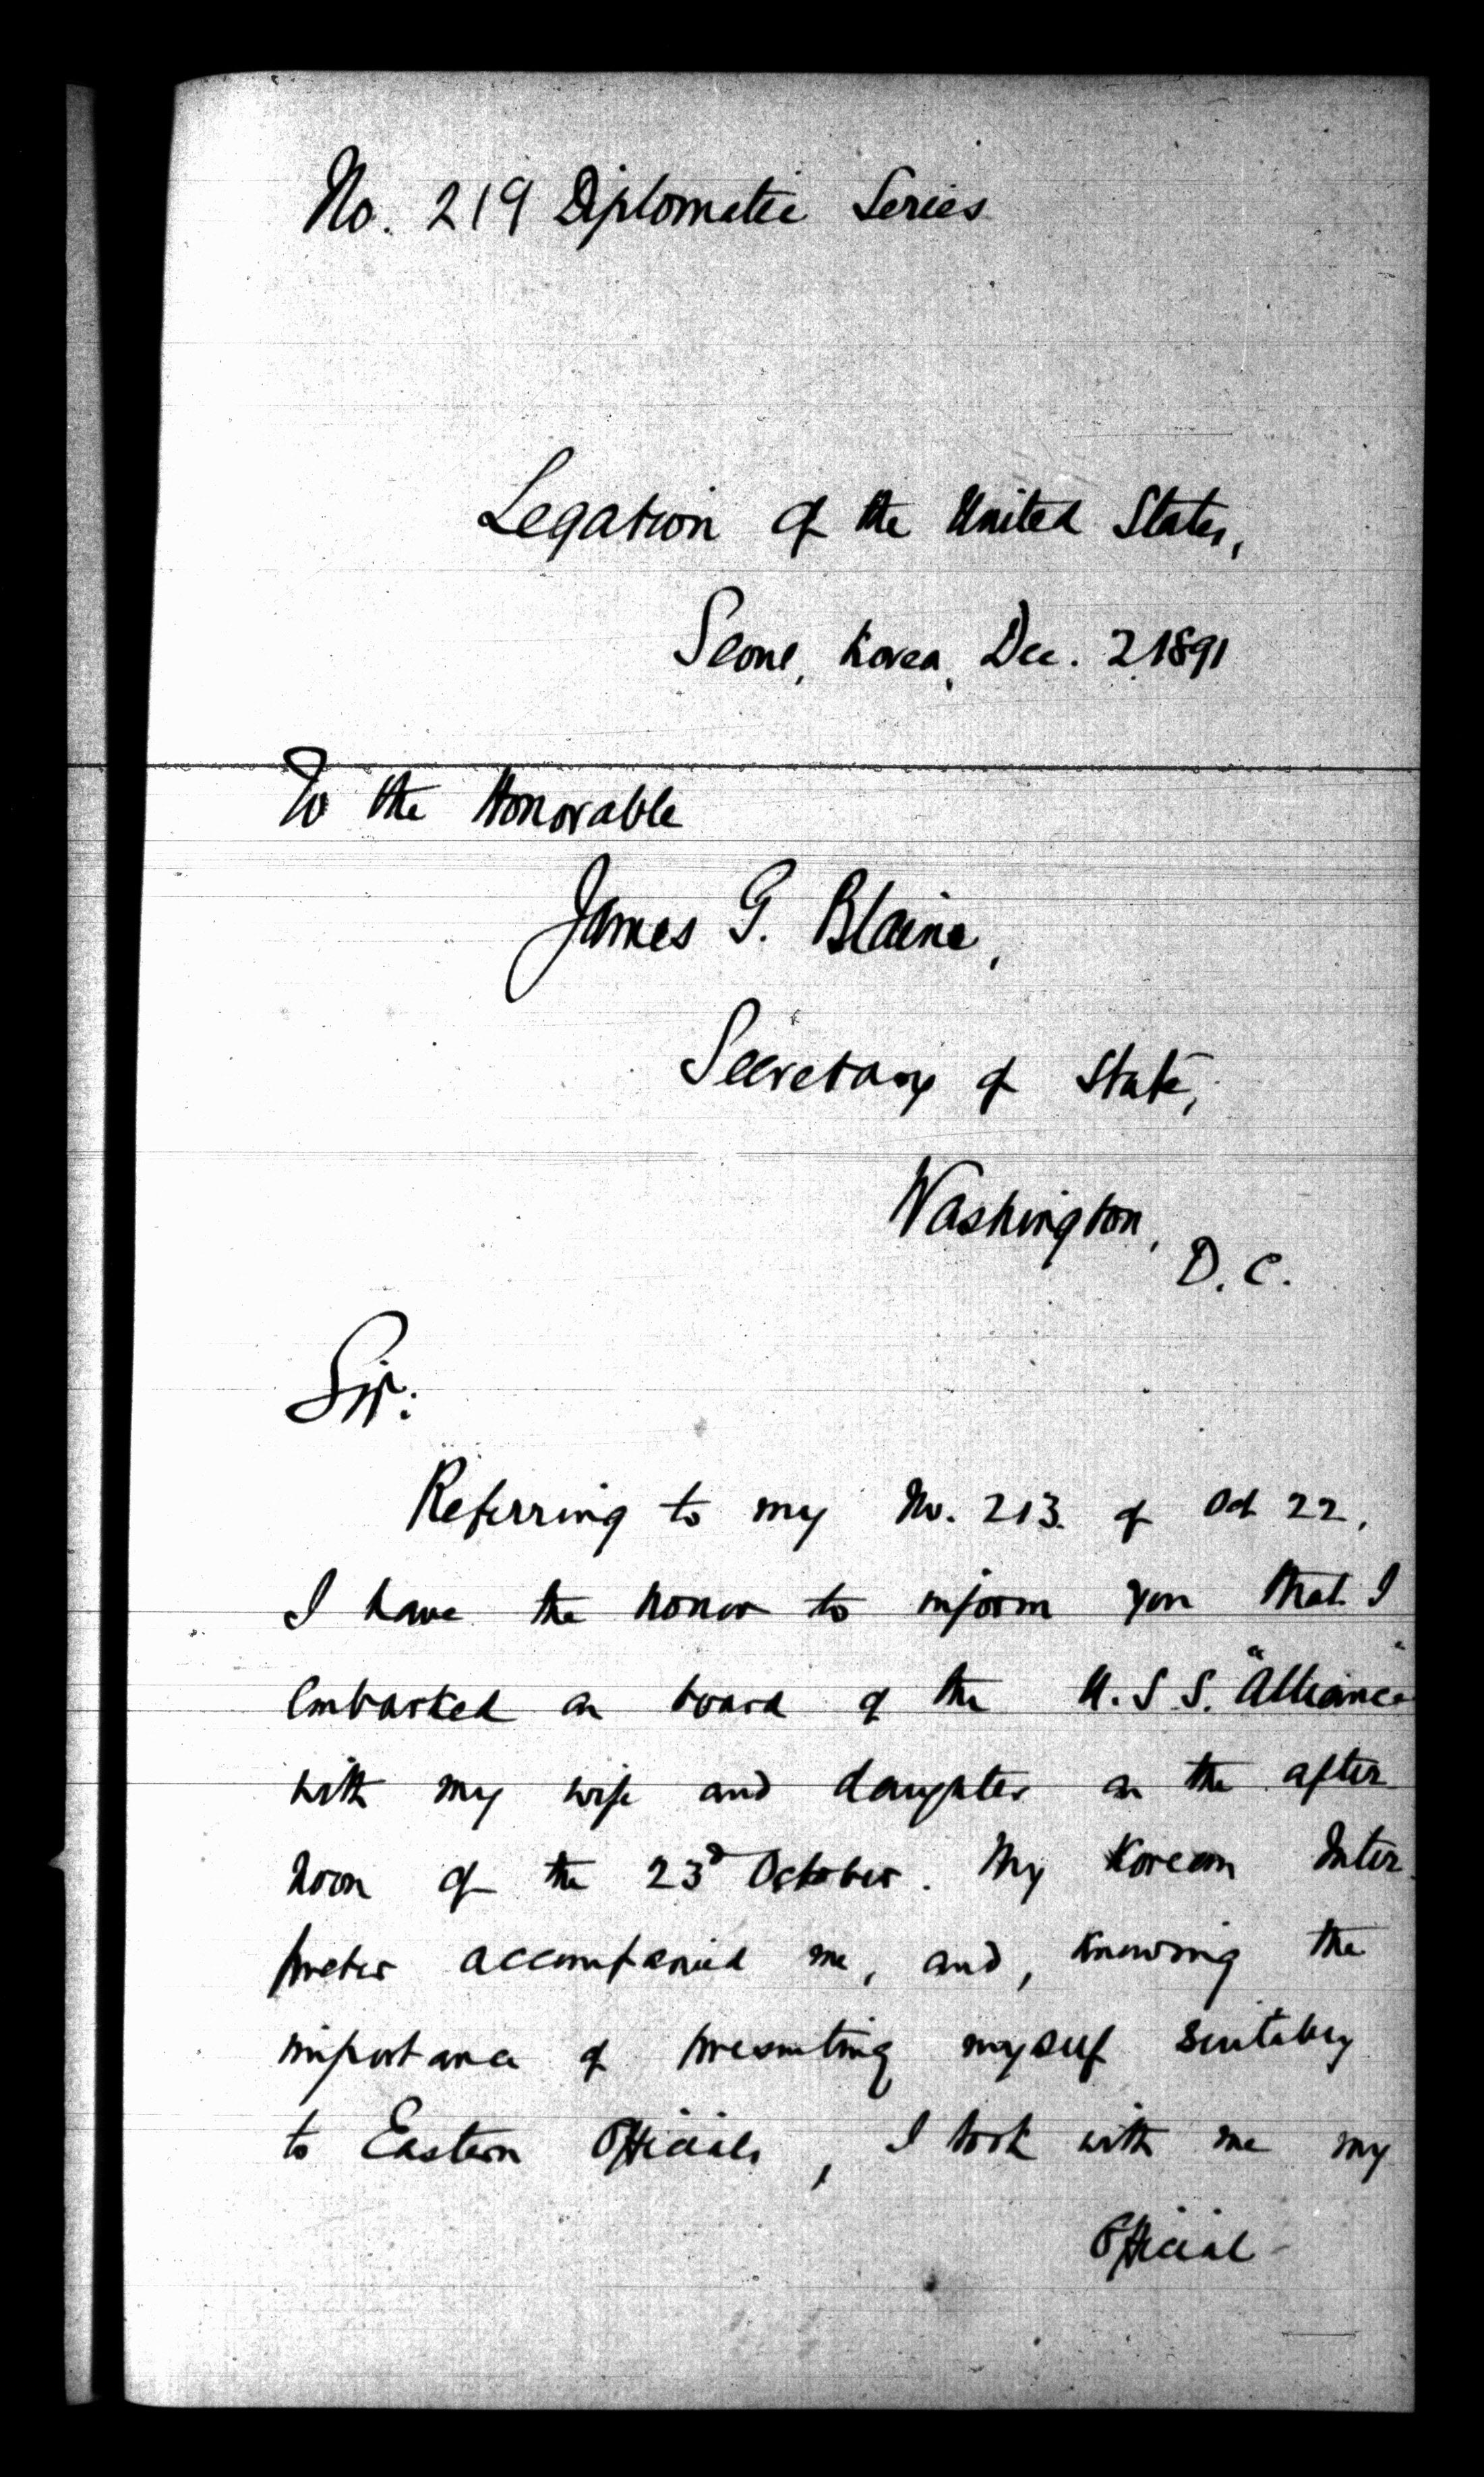 No. 219 Diplomatic Series
Legation of the United States,
Seoul, Korea, Dec. 2, 1891
To the Honorable
James G. Blaine,
Secretary of State,
Washington,
D. C.
Sir:
Referring to my No. 213. of Oct 22,
I have the honor to inform you that I
embarked on board of the U. S. S. "Alliance"
with my wife and daughter on the after-
noon of the 23d October. My Korean Inter-
preter accompanied me, and, knowing the
importance of presenting myself suitably
to Eastern Officials, I took with me my
Official